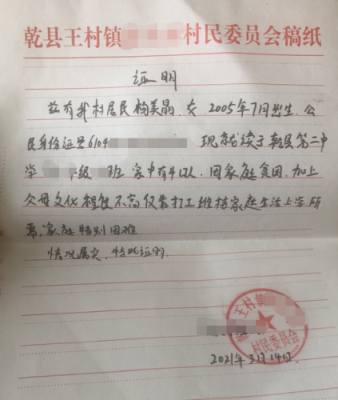 乾县王村镇 村民委员会稿纸
证明
兹有我村居民杨美晶,女,2005年7月出生,公
民身份证号6104 现就读于乾县第二中
学 级 班 家中有4口人,因家庭贫困,加上
父母文化程度不高仅靠打工维持家庭生活上学所
需,家庭特别困难
情况属实,特此证明.
王村镇
村民委员会
2021年3月14日.